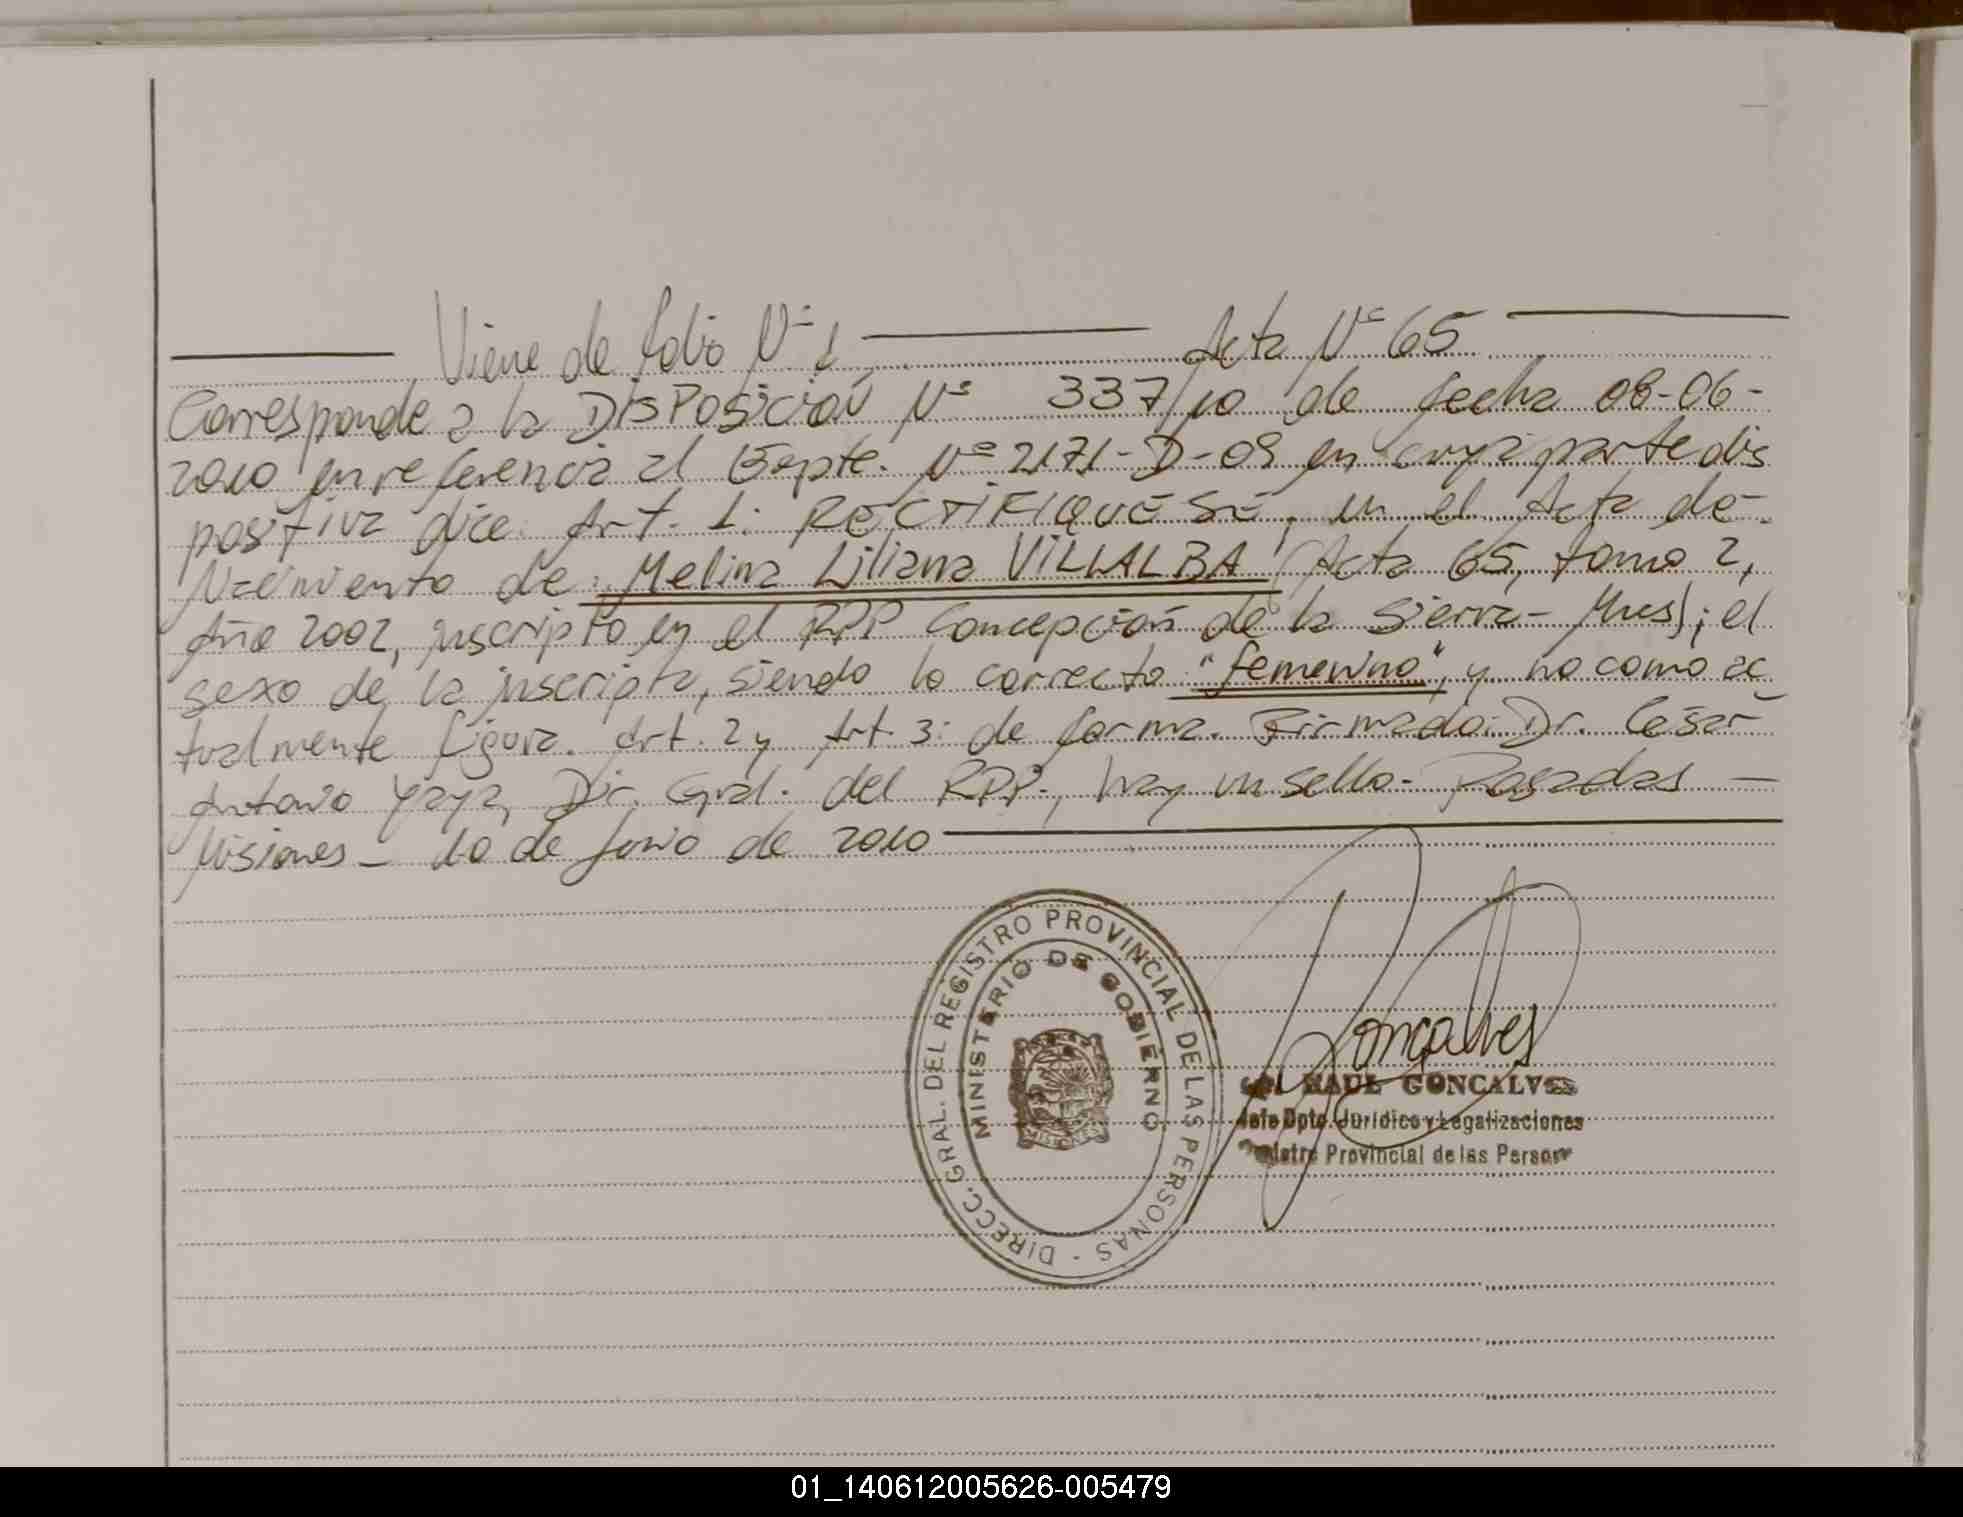 Viene de folio Nº 1 Acta Nº 65
Corresponde a la DISPOSICIÓN Nº 337/10 de fecha 08-06-
2010 en referencia al Expte. Nº 2171-D-09 en cuya parte dis
positiva dice: Art. 1: RECTIFIQUESE, en el Acta de
Nacimiento de: Melina Liliana VILLALBA (Acta 65, tomo 2,
Año 2002, inscripto en el RPP Concepción de la Sierra - Mnes); el
sexo de la inscripta, siendo lo correcto "femenino", y no como ac
tualmente figura. Art. 2 y Art. 3: de forma. Firmado: Dr. César
Antonio Yaya, Dir. Gral. del RPP., hay un sello. Posadas -
Misiones - 10 de Junio de 2010
DIRECC. GRAL. DEL REGISTRO PROVINCIAL DE LAS PERSONAS -
MINISTERIO DE GOBIERNO
MISIONES
Gonçalves
RAUL GONCALVES
Jefe Dpto. Jurídico y Legalizaciones
Provincial de las Person
01_140612005626-005479